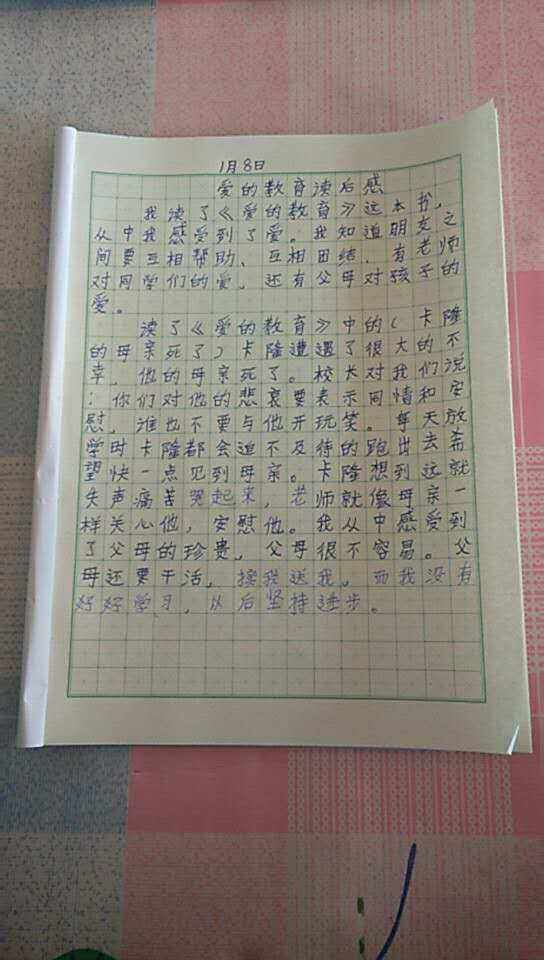 1月8日
爱的教育读后感
我读了《爱的教育》这本书，
从中我感受到了爱。我知道朋友之
间要互相帮助、互相团结，有老师
对同学们的爱，还有父母对孩子的
爱。
读了《爱的教育》中的(卡隆
的母亲死了)卡隆遭遇了很大的不
幸，他的母亲死了。校长对我们说
：你们对他的悲哀要表示同情和安
慰，谁也不要与他开玩笑。每天放
学时卡隆都会迫不及待的跑出去
望快一点见到母亲。卡隆想到这就
失声痛苦哭起来，老师就像母亲一
样关心他，安慰他。我从中感受到
了父母的珍贵，父母很不容易。父
母还要干活，接我送我，而我没有
好好学习，以后坚持进步。